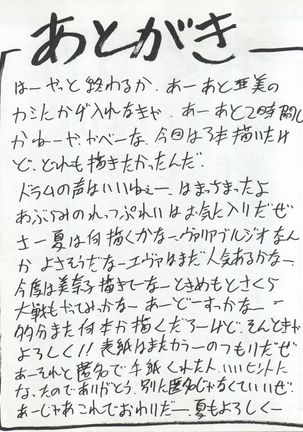 あとがき
はーやっと終わるか. あーあと亜美の
カミにカゲ入れなきゃ. あーあと2時間し
かねーや.かべーな. 今回は3本描いたけ
ど、どれも描きたかったんだ.
ドラムの声はいいねぇー. はまっちまったよ
あぶらみのれっつぷれいはお気に入りだぜ
さー夏は何描くかなー. ヴァリアブルジオなん
か よさそうだなーエヴァはまだ人気あるかなー.
今度は美奈子描きてーなーときめもとさくら
大戦もやってみっかなー あーどーすっかなー
多分また何本か描くだろーけど. そんときゃ
よろしく!! 表紙はまたカラーのつもりだぜ
あーそれと匿名で手紙くれた人. いいヒントに
なったのでありがとう. 別に匿名じゃなくていいぜ.
あーじゃあこれでおわりだー. 夏もよろしくー